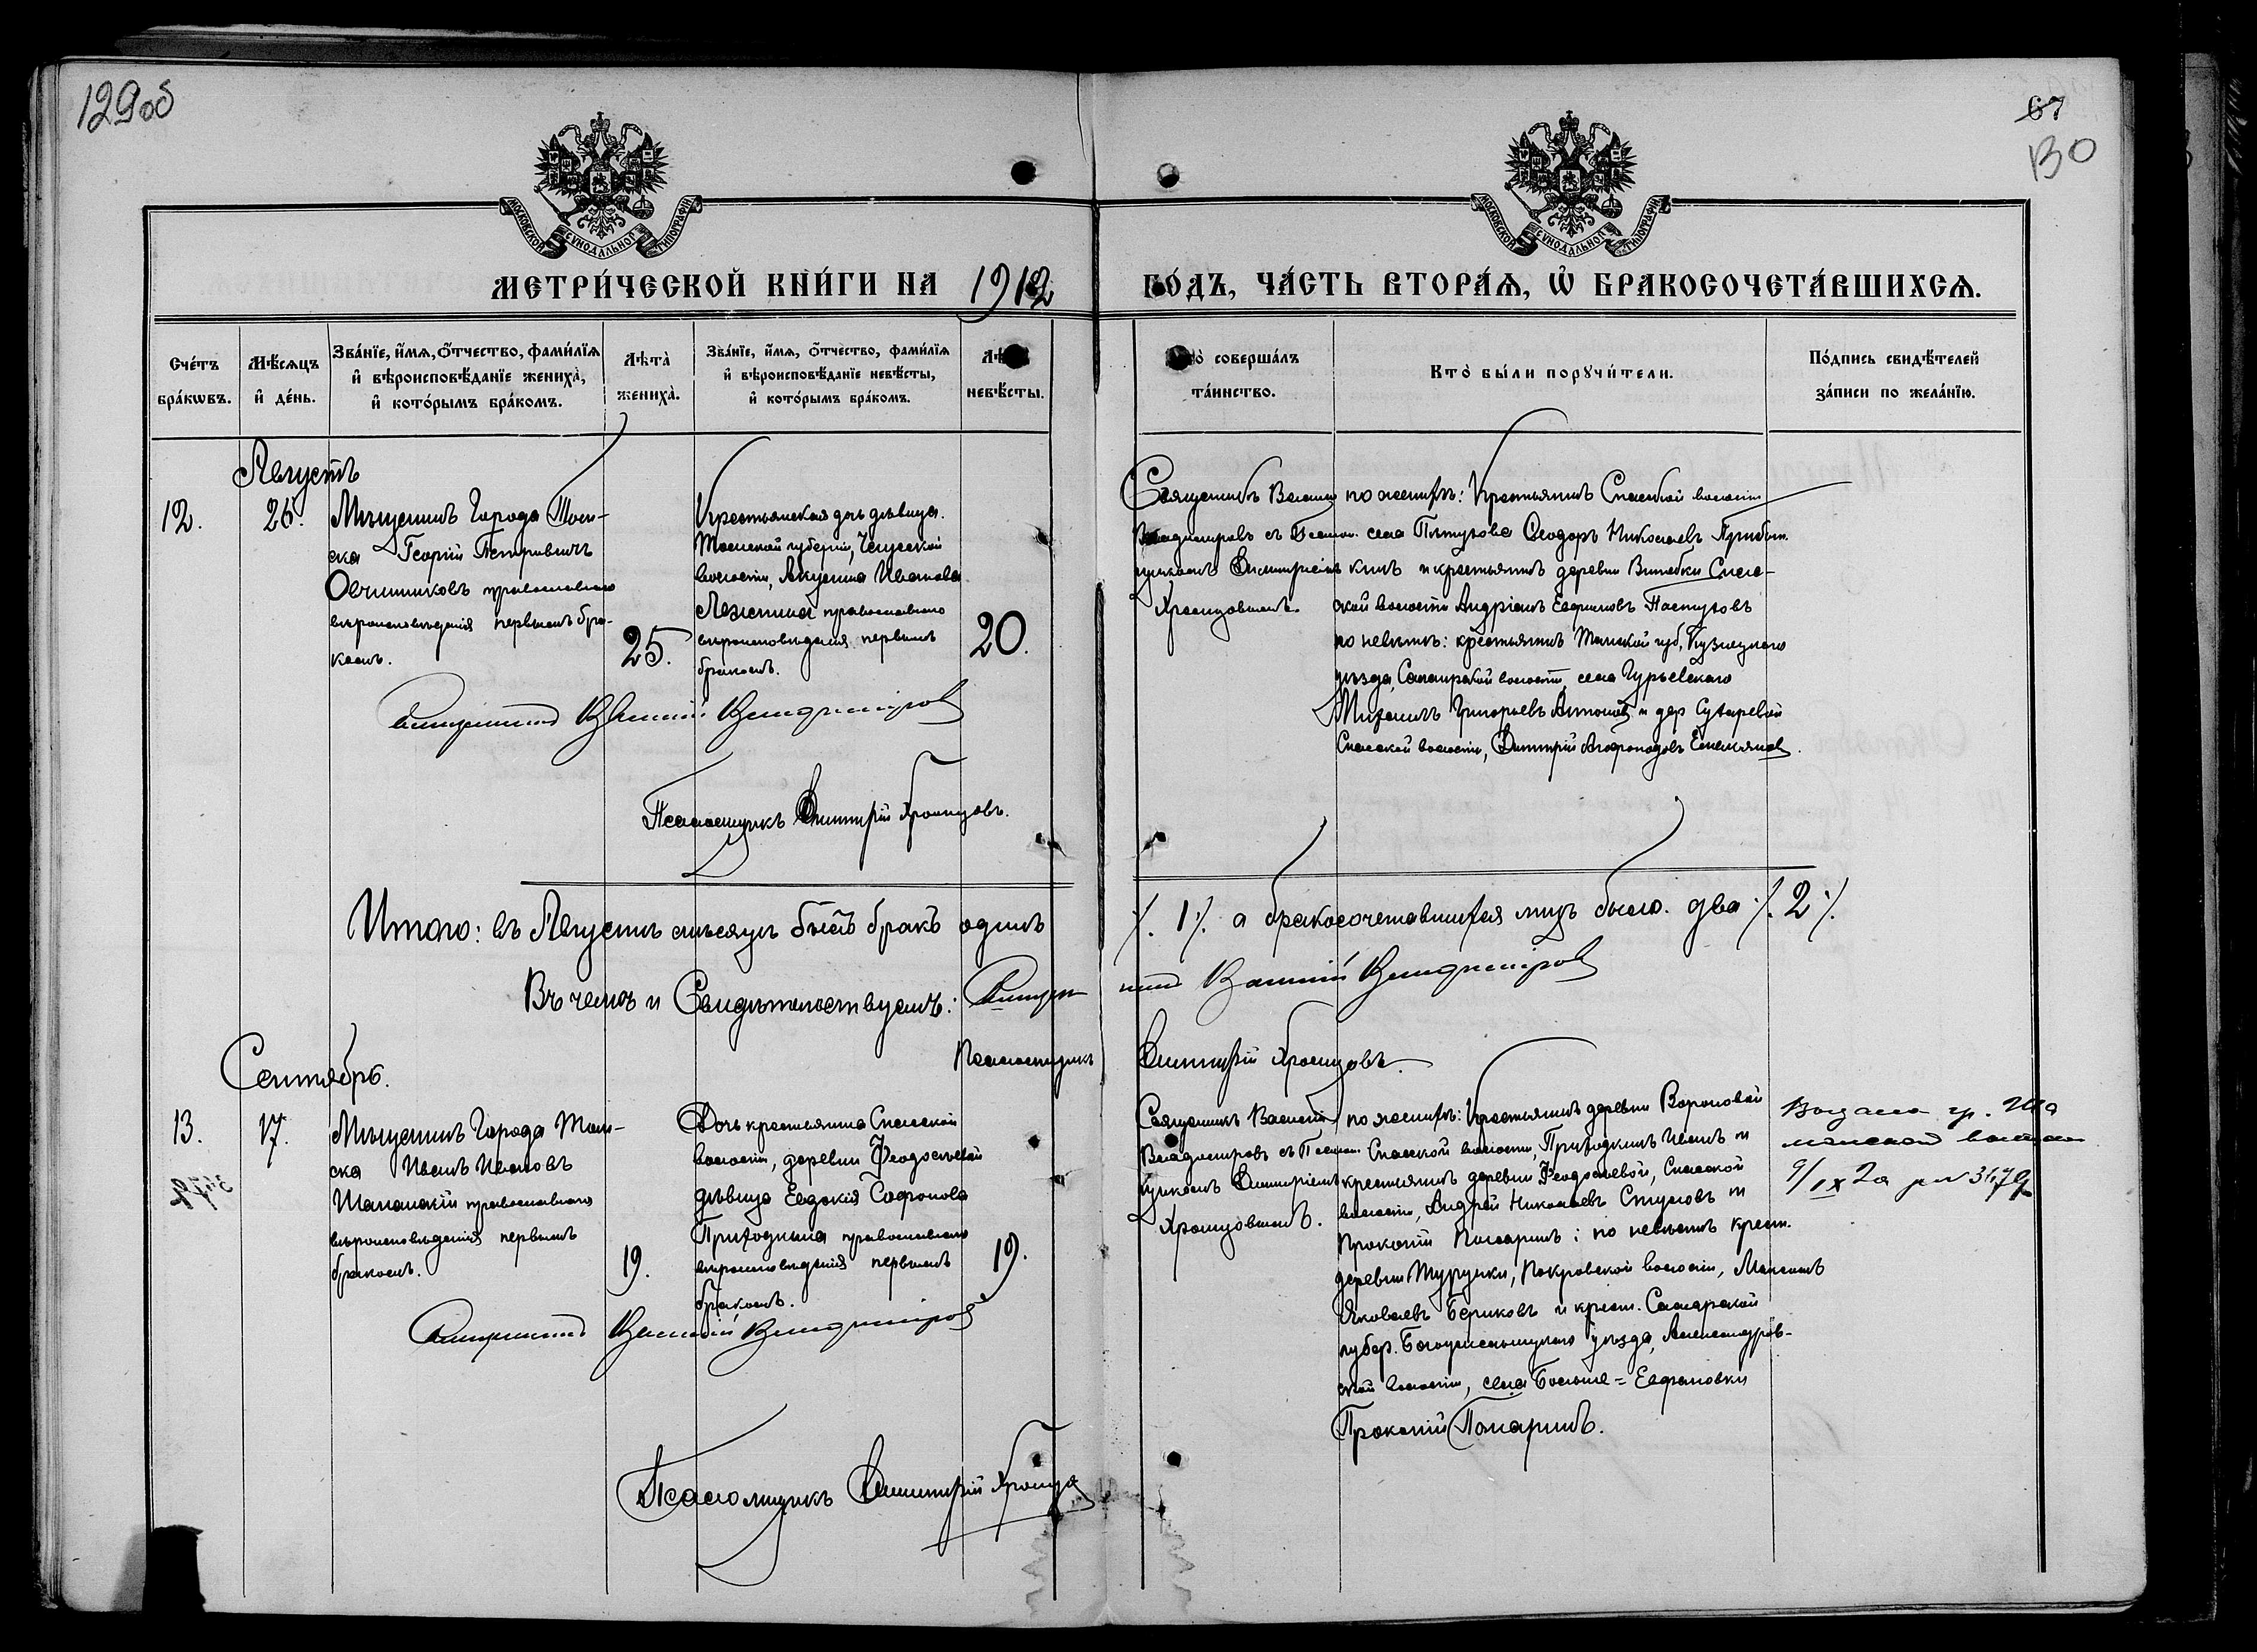 129об
67
130
МОСКОВСКОЙ СѴНОДАЛЬНОЙ ТИПОГРАФІИ
МОСКОВСКОЙ СѴНОДАЛЬНОЙ ТИПОГРАФІИ
МЕТРИ́ЧЕСКОЙ КНИ́ГИ НА 1912 ГО́ДЪ, ЧА́СТЬ ВТОРА́Ѧ, Ѡ҆ БРАКОСОЧЕТА́ВШИХСѦ.
Сче́тъ бра́кѡвъ.
Мѣ́сѧцъ и҆ де́нь.
Зва́нїе, и҆́мѧ, ѻ҆́тчество, фами́лїѧ и҆ вѣроисповѣ́данїе жениха̀, и҆ кото́рымъ бра́комъ.
Лѣта̀ жениха̀.
Зва́нїе, и҆́мѧ, ѻ҆́тчество, фами́лїѧ и҆ вѣроисповѣ́данїе невѣ́сты, и҆ кото́рымъ бра́комъ.
Лѣта̀ невѣ́сты.
Кто̀ соверша́лъ та́инство.
Кто̀ бы́ли порꙋчи́тели.
По́дпись свидѣ́телей за́писи по жела́нїю.
Августъ
12.
26.
Мѣщанинъ Города Том-
ска Георгій Петровичъ
Овчинниковъ православнаго
вѣроисповѣданія первымъ бра-
комъ.
25.
Крестьянская дочь дѣвица.
Томской губерніи,
волости, Акулина Иванова
православнаго
вѣроисповѣданія первымъ
бракомъ.
20.
Священникъ Василій
Владиміровъ съ Псалом-
щикомъ Димитріемъ
Хромцовымъ.
по женихѣ: Крестьянинъ Спасской волости
села Пѣтухова Ѳеодоръ Николаевъ
кинъ и крестьянинъ деревни Спас-
ской волости Андріанъ Пастуховъ
по невѣстѣ: крестьянинъ Томской губ, Кузнецкаго
уѣзда, Салаирской волости, села Гурьевскаго
Михаилъ Григорьевъ Антоновъ и дер Сухаревой
Спасской волости, Димитрій Емельяновъ.
Священникъ Василій Владиміровъ
Псаломщикъ Димитрій Хромцовъ.
Итого: въ Августѣ мѣсяцѣ былъ бракъ одинъ ·/. 1 ·/. а бракосочетавшихся лицъ было. два ·/. 2 ·/.
Въ чемъ и Свидѣтельствуемъ: Священникъ Василій Владиміровъ
Псаломщикъ Димитрій Хромцовъ.
Сентябрь.
13.
17.
Мѣщанинъ Города Том-
ска Иванъ Ивановъ
православнаго
вѣроисповѣданія первымъ
бракомъ.
19.
Дочь крестьянина Спасской
волости, деревни Ѳеодосьевой
дѣвица Евдокія Софонова
Приходкина православнаго
вѣроисповѣданія первымъ
бракомъ.
19.
Священникъ Василій
Владиміровъ съ Псалом-
щикомъ Димитріемъ
Хромцовымъ.
по женихѣ: Крестьянинъ деревни Вороновой
Спасской волости, Приходкинъ Иванъ и
крестьянинъ деревни Ѳеодосьевой, Спасской
волости, Андрей Николаевъ Стуковъ и
Прокопій : по невѣстѣ крест.
деревни Покровской волости, Максимъ
Яковлевъ Бериковъ и крест. Самарской
губер. уѣзда, Александров-
ской волости, села Больше=Ефановки
Прокопій
Выдана
9/IX 2 г
Священникъ Василій Владиміровъ
Псаломщикъ Димитрій Хромцов